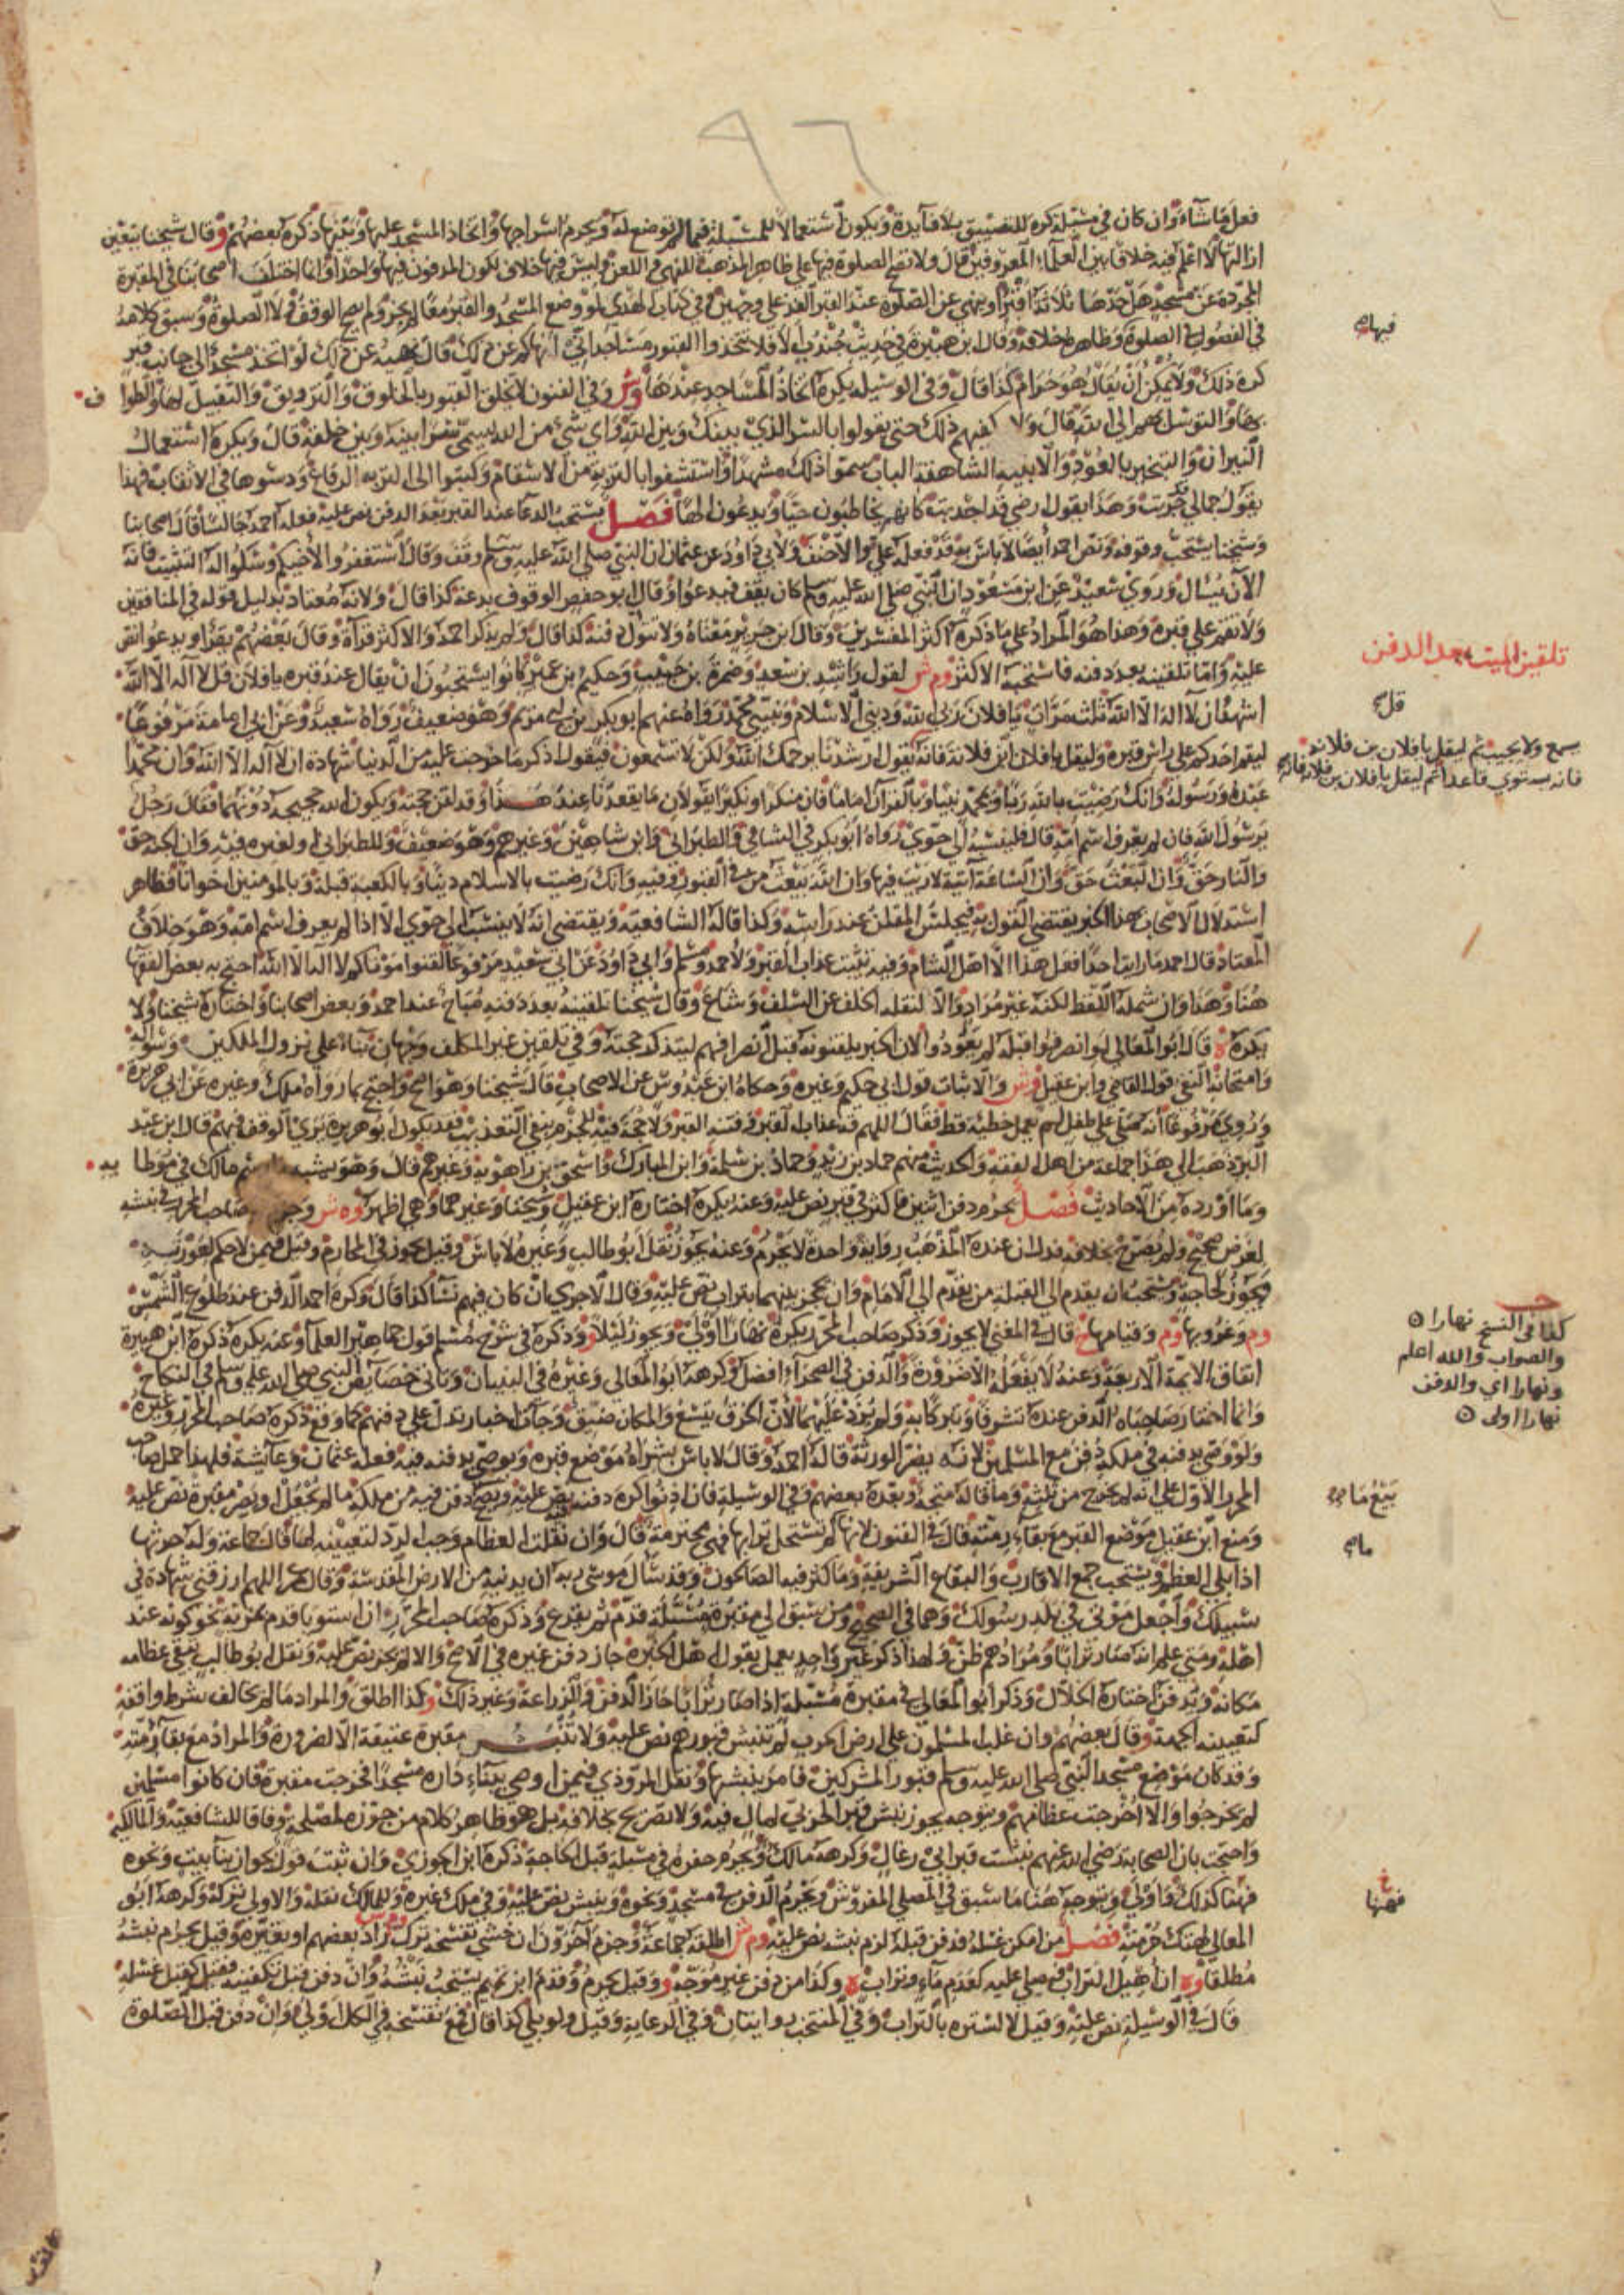 ٩٦
فعل ما شاء وان كان في مسبلة كره للتضييق بلا فآيدة ويكون استعمالا للمسبلة فيما لم توضع له ويحرم اسراجها واتخاذ المسجد عليها وبينها ذكره بعضهم وقال شيخنا يتعين
ازالتها لا اعلم فيه خلافا بين العلماء المعروفين قال ولا تصح الصلوة فيها على ظاهر المذهب للنهي واللعن وليس فيها خلاف لكون المدفون فيها واحدا وانما اختلف اصحابنا في المقبرة
المجردة عن مسجد هل حدها ثلاثة اقبر او ينهى عن الصلوة عند القبر الفذ على وجهين وفي كتاب الهدي لو وضع المسجد والقبر معا لم يجز ولم يصح الوقف ولا الصلوة وسبق كلامه
في الفصول في الصلوة وظاهره خلافه وقال ابن هبيرة في حديث جندب الا فلا تتخذوا القبور مساجد اني انهاكم عن ذلك قال نهيه عن ذلك لو اتخذ مسجدا الى جانب قبر
كره ذلك ولا يمكن ان يقال هو حرام كذا قال وفي الوسيلة يكره اتخاذ المساجد عندها وش وفي الفنون لا تخلق القبور بالخلوق والتزويق والتقبيل لها والطواف
بها والتوسل بهم الى الله قال ولا يكفيهم ذلك حتى يقولوا بالسر الذي بينك وبين الله واي شيء من الله يسمى سرا بينه وبين خلقه قال ويكره استعمال
النيران والتبخير بالعود والابنية الشاهقة الباب سموا ذلك مشهدا واستشفوا بالتربة من الاسقام وكتبوا الى التربة الرقاع ودسوها في الاثقاب فهذا
يقول جمالي قد جربت وهذا يقول ارضي قد اجدبت كانهم يخاطبون حيا ويدعون الها فصل يستحب الدعا عند القبر بعد الدفن نص عليه فعله احمد جالسا قال اصحابنا
وشيخنا يستحب وقوفه ونص احمد ايضا لا باس به قد فعله علي والاحنف ولابي داود عن عثمان ان النبي صلى الله عليه وسلم وقف وقال استغفروا لاخيكم وسلوا له التثبيت فانه
الآن يسال وروى سعيد عن ابن مسعود ان النبي صلى الله عليه وسلم كان يقف فيدعوا وقال ابو حفص الوقوف بدعة كذا قال ولانه معتاد بدليل قوله في المنافقين
ولا تقم على قبره وهذا هو المراد على ما ذكره اكثر المفسرين وقال ابن جرير معناه ولا تتول دفنه كذا قال ولم يذكر احمد والاكثر قراة وقال بعضهم يقرا ويدعو نص
عليه واما تلقينه بعد دفنه فاستحبه الاكثر وم ش لقول راشد بن سعد وضمرة بن حبيب وحكيم بن عمير كانوا يستحبون ان يقال عند قبره يا فلان قل لا آله الا الله
اشهد ان لا آله الا الله ثلث مرات يا فلان قل ربي الله وديني الاسلام ونبيي محمد رواه عنهم ابو بكر بن ابي مريم وهو ضعيف رواه سعيد وعن ابي امامة مرفوعا
ليقم احدكم على راس قبره وليقل يا فلان ابن فلانة فانه يقول ارشدنا يرحمك الله ولكن لا تسمعون فيقول اذكر ما خرجت عليه من الدنيا شهادة ان لا آله الا الله وان محمدا
عبده ورسوله وانك رضيت بالله ربا وبمحمد نبيا وبالقرآن اماما فان منكرا ونكيرا يقولان ما يقعدنا عند هذا وقد لقن حجته ويكون الله حجيجه دونهما فقال رجل
يرسول الله فان لم يعرف اسم امه قال فلينسبه الى حوى رواه ابو بكر في الشافي والطبراني وابن شاهين وغيرهم وهو ضعيف وللطبراني او لغيره فيه وان الجنة حق
والنار حق وان البعث حق وان الساعة آتية لا ريب فيها وان الله يبعث من في القبور وفيه وانك رضيت بالاسلام دينا وبالكعبة قبلة وبالمومنين اخوانا فظاهر
استدلال الاصحاب بهذا الخبر يقتضي القول به فيجلس الملقن عند راسه وكذا قاله الشافعية ويقتضي انه لا ينسب الى حوى الا اذا لم يعرف اسم امه وهو خلاف
المعتاد قال احمد ما رايت احدا فعل هذا الا اهل الشام وفيه تثبت عذاب القبر ولاحمد ومسلم وابي داود عن ابي سعيد مرفوعا لقنوا موتاكم لا اله الا الله احتج به بعض الفقها
هنا وهذا وان شمله اللفظ لكنه غير مراد والا لنقله الخلف عن السلف وشاع وقال شيخنا تلقينه بعد دفنه مباح عند احمد وبعض اصحابنا واختاره شيخنا ولا
يكره قال ابو المعالي لو انصرفوا قبله لم يعودوا لان الخبر يلقنونه قبل انصرافهم ليتذكر حجته وفي تلقين غير المكلف وجهان بناء على نزول الملكين وسؤاله
وامتحانه النفي قول القاضي وابن عقيل وش والاثبات قول ابي حكيم وغيره وحكاه ابن عبدوس عن الاصحاب قال شيخنا وهو اصح واحتج بما رواه ملك وغيره عن ابي هريرة
وروي مرفوعا انه صلى على طفل لم يعمل خطية قط فقال اللهم قه عذاب القبر وفتنة القبر ولا حجة فيه للجزم بنفي التعذيب فقد يكون ابو هريرة يرى الوقف فيهم قال ابن عبد
البر ذهب الى هذا جماعة من اهل الفقه والحديث منهم حماد بن زيد وحماد بن سلمة وابن المبارك واسحق بن راهويه وغيرهم قال وهو يشبه رسم مالك في موطايه
وما اورده من الاحاديث فصل يحرم دفن اثنين فاكثر في قبر نص عليه وعنه يكره اختاره ابن عقيل وشيخنا وغيرهما وهي اظهر وه ش صاحب المحرر في نبشه
لغرض صحيح ولم يصرح بخلافه فدل ان عنده المذهب رواية واحدة لا يحرم وعنه يجوز نقل ابو طالب وغيره لا باس وقيل يجوز في المحارم وقيل فيمن لا حكم لعورته
ويجوز لحاجة ويستحب ان يقدم الى القبلة من يقدم الى الامام وان يحجز بينهما بتراب نص عليه وقال الاجري ان كان فيهم نسآ كذا قال وكره احمد الدفن عند طلوع الشمس
وم وغروبها وم وقيامها قال في المغني لا يجوز وذكر صاحب المحرر يكره نهارا اولى ويجوز ليلا وذكره في شرح مسلم قول جماهير العلما وعنه يكره ذكره ابن هبيرة
اتفاق الايمة الاربعة وعنه لا يفعله الا ضرورة والدفن في الصحراء افضل وكرهه ابو المعالي وغيره في البنيان وياتي خصايص النبي صلى الله عليه وسلم في النكاح
وانما اختار صاحباه الدفن عنده تشرفا وتبركا به ولم يزد عليهما لان الخرق يتسع والمكان ضيق وجآت اخبار تدل على دفنهم كما وقع ذكره صاحب المحرر وغيره
ولو وصى بدفنه في ملكه دفن مع المسلمين لانه يضر الورثة قاله احمد وقال لا باس بشراه موضع قبره ويوصي بدفنه فيه فعله عثمان وعآيشة فلهذا حمل صاحب
المحرر الاول على انه لم يخرج من ثلثه وما قاله متجه وبعده بعضهم وفي الوسيلة فان اذنوا كره دفنه نص عليه ويصح دفن فيه من ملكه ما لم يجعل او يصر مقبرة نص عليه
ومنع ابن عقيل موضع القبر مع بقاء رمته قال في الفنون لانها لم تستحل ترابها فهي محترمة قال وان نقلت العظام وجب الرد لتعيينه لها قال جماعة وله حرثها
اذا بلي العظم ويستحب جمع الاقارب والبقاع الشريفة وما كثر فيه الصالحون وقد سأل موسى ربه ان يدنيه من الارض المقدسة وقال عمر اللهم ارزقني شهادة في
سبيلك واجعل موتي في بلد رسولك وهما في الصحيح ومن سبق الى مقبرة مسبلة قدم ثم يقرع وذكره صاحب المحرر ان استويا قدم بمزية نحو كونه عند
اهله ومتى علم انه صار ترابا ومرادهم ظن ولهذا ذكر غير واحد يعمل بقول اهل الخبرة جاز دفن غيره في الاصح والا لم يجز نص عليه ونقل ابو طالب يبقى عظامه
مكانه ويدفن اختاره الخلال وذكر ابو المعالي في مقبرة مسبلة اذا صار ترابا جاز الدفن والزراعة وغير ذلك وكذا اطلق والمراد ما لم يخالف شرط واقفه
لتعيينه الجهة وقال بعضهم وان غلب المسلمون على ارض الحرب لم تنبش قبورهم نص عليه ولا تنبش مقبرة عتيقة الا لضرورة والمراد مع بقآ رمته
وقد كان موضع مسجد النبي صلى الله عليه وسلم قبور المشركين فامر بنبشها ونقل المروذي فيمن اوصى ببناء داره مسجدا فخرجت مقبرة فان كانوا مسلمين
لم يخرجوا والا اخرجت عظامهم ويتوجه يجوز نبش قبر الحربي لمال فيه ولا تصريح بخلافه بل هو ظاهر كلام من جوزه لمصلحة وفاقا للشافعية والمالكية
واحتجت بان الصحابة رضي الله عنهم نبشت قبر ابي رغال وكرهه مالك ويحرم حفره في مسبلة قبل الحاجة ذكره ابن الجوزي وان ثبت قول بجواز بنآ بيت ونحوه
فهنا كذلك واولى ويتوجه هنا ما سبق في المصلى المفروش ويحرم الدفن في مسجد ونحوه وينبش نص عليه وفي ملك غيره وللمالك نقله والاولى تركه وكرهه ابو
المعالي لهتك حرمته فصل من امكن غسله فدفن قبله لزم نبشه نص عليه وم ش اطلقه جماعة وجزم آخرون ان خشي تفسخه ترك زاد بعضهم او تغيره وقيل يحرم نبشه
مطلقا وه ان اهيل التراب وصلي عليه كعدم مآء وتراب ه وكذا من دفن غير موجه وقيل يحرم وقدم ابن تميم يستحب نبشه وان دفن قبل تكفينه فقيل كقبل غسله
قال في الوسيلة نص عليه وقيل لا لستره بالتراب وفي المنتخب روايتان وفي الرعاية وقيل ولو بلي كذا قال فمع تفسخه في الكل اولى وان دفن قبل الصلوة
فيها
تلقين الميت بعد الدفن
قل
يسمع ولا يجيب ثم ليقل يا فلان بن فلانة
فانه يستوي قاعدا ثم ليقل يا فلان بن فلانة فانه
كذا في النسخ نهارا
والصواب والله اعلم
ونهارا اي والدفن
نهارا اولى
بيع ما
ما
فههنا